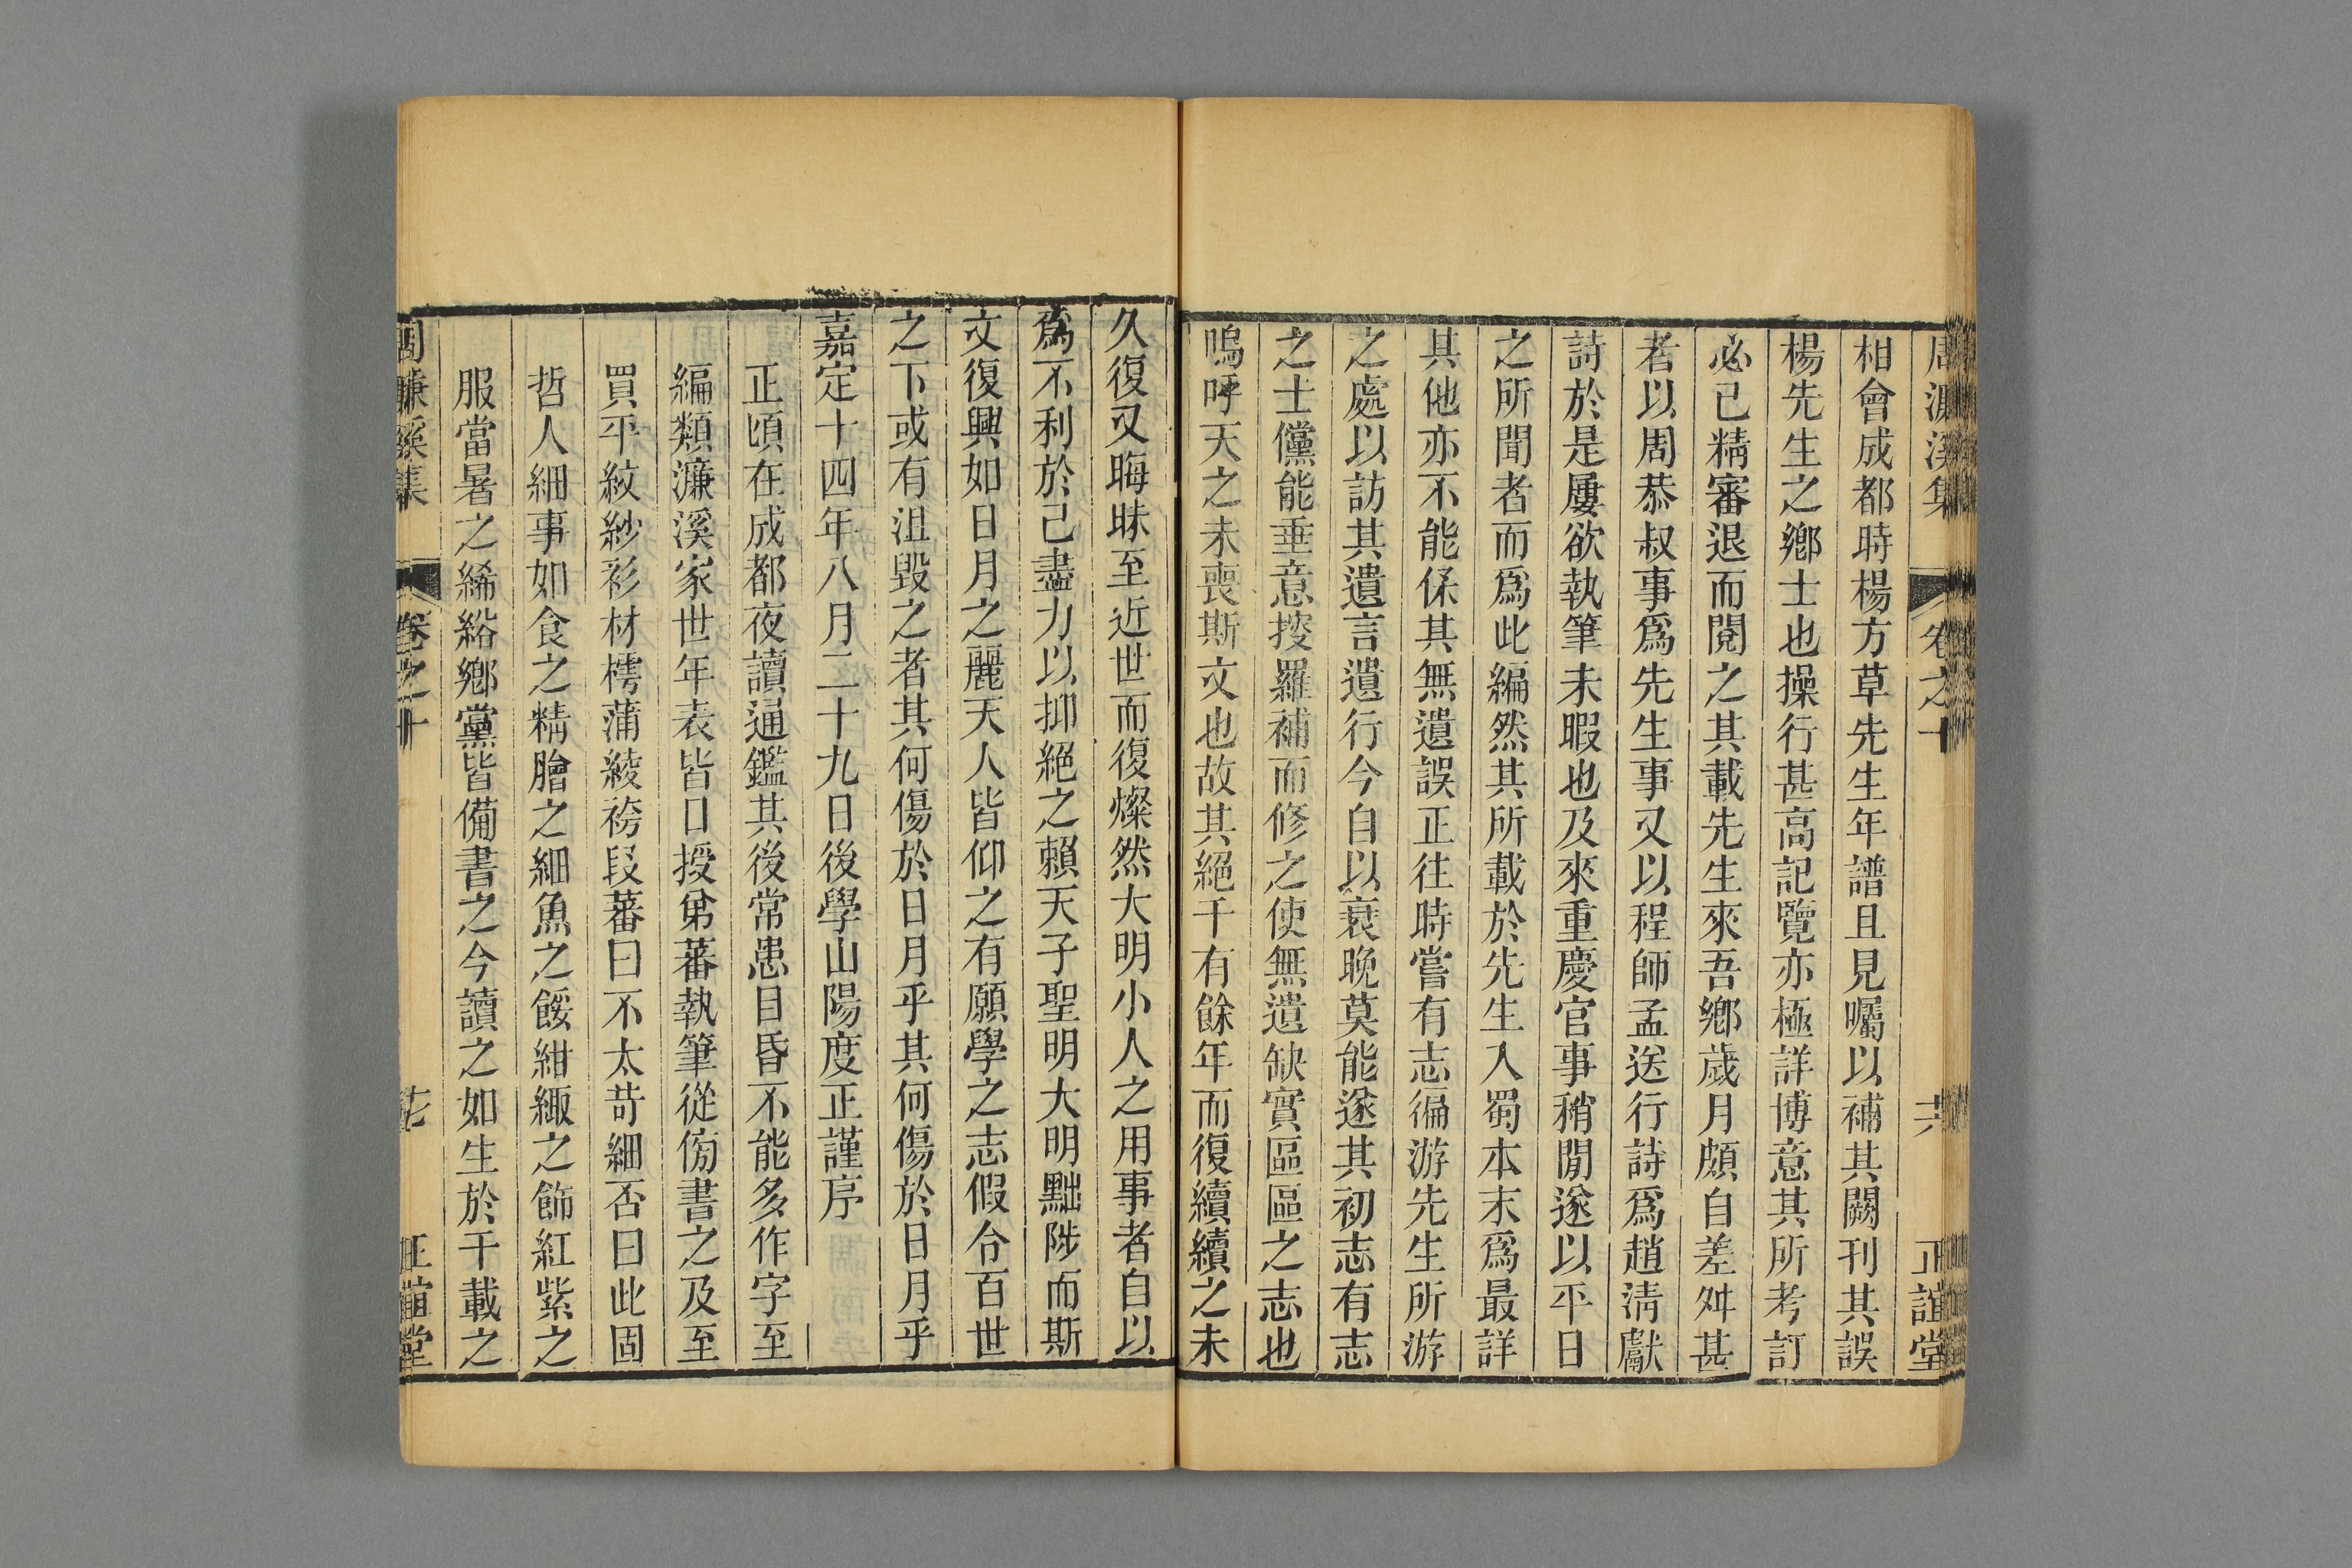 周濂溪集 卷之十 共 正誼堂
相會成都時楊方草先生年譜且見囑以補其闕刊其誤
楊先生之鄉士也操行甚高記覽亦極詳博意其所考訂
必已精審退而閱之其載先生來吾鄉歲月頗自差舛甚
者以周恭叔事爲先生事又以程師孟送行詩爲趙淸獻
詩於是屢欲執筆未暇也及來重慶官事稍閒遂以平日
之所聞者而爲此編然其所載於先生入蜀本末爲最詳
其他亦不能保其無遺誤正往時嘗有志徧游先生所游
之處以訪其遺言遺行今自以衰晚莫能遂其初志有志
之士儻能垂意搜羅補而修之使無遺缺實區區之志也
嗚呼天之未喪斯文也故其絕千有餘年而復續續之未
久復又晦昧至近世而復燦然大明小人之用事者自以
爲不利於己盡力以抑絕之賴天子聖明大明黜陟而斯
文復興如日月之麗天人皆仰之有願學之志假令百世
之下或有沮毀之者其何傷於日月乎其何傷於日月乎
嘉定十四年八月二十九日後學山陽度正謹序
正頃在成都夜讀通鑑其後常患目昏不能多作字至
編類濂溪家世年表皆口授弟蕃執筆從傍書之及至
買平紋紗衫材樗蒲綾袴段蕃曰不太苛細否曰此固
哲人細事如食之精膾之細魚之餒紺緅之飾紅紫之
服當暑之絺綌鄉黨皆備書之今讀之如生於千載之
周濂溪集 卷之十 正誼堂